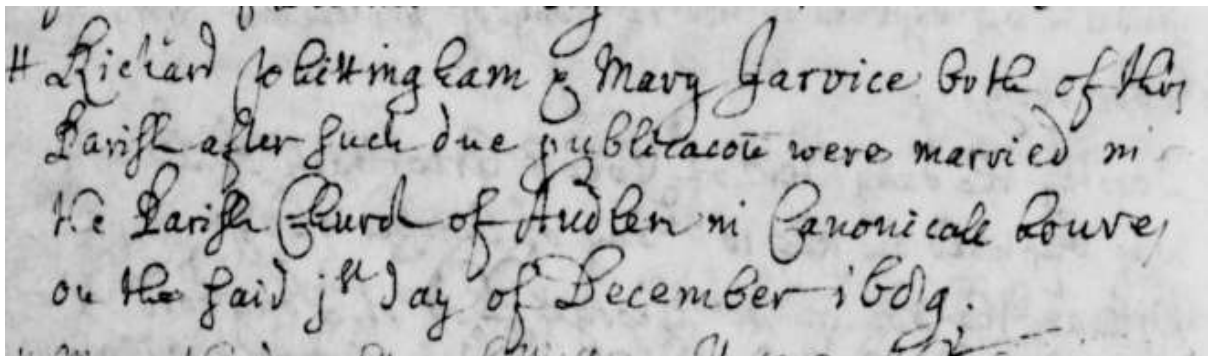 # Richard Whittingham & Mary Jarvice both of this
Parish after such due publicacōn were married in
the Parish Church of Audley in Canonicall houres
on the said jst day of December 1689.